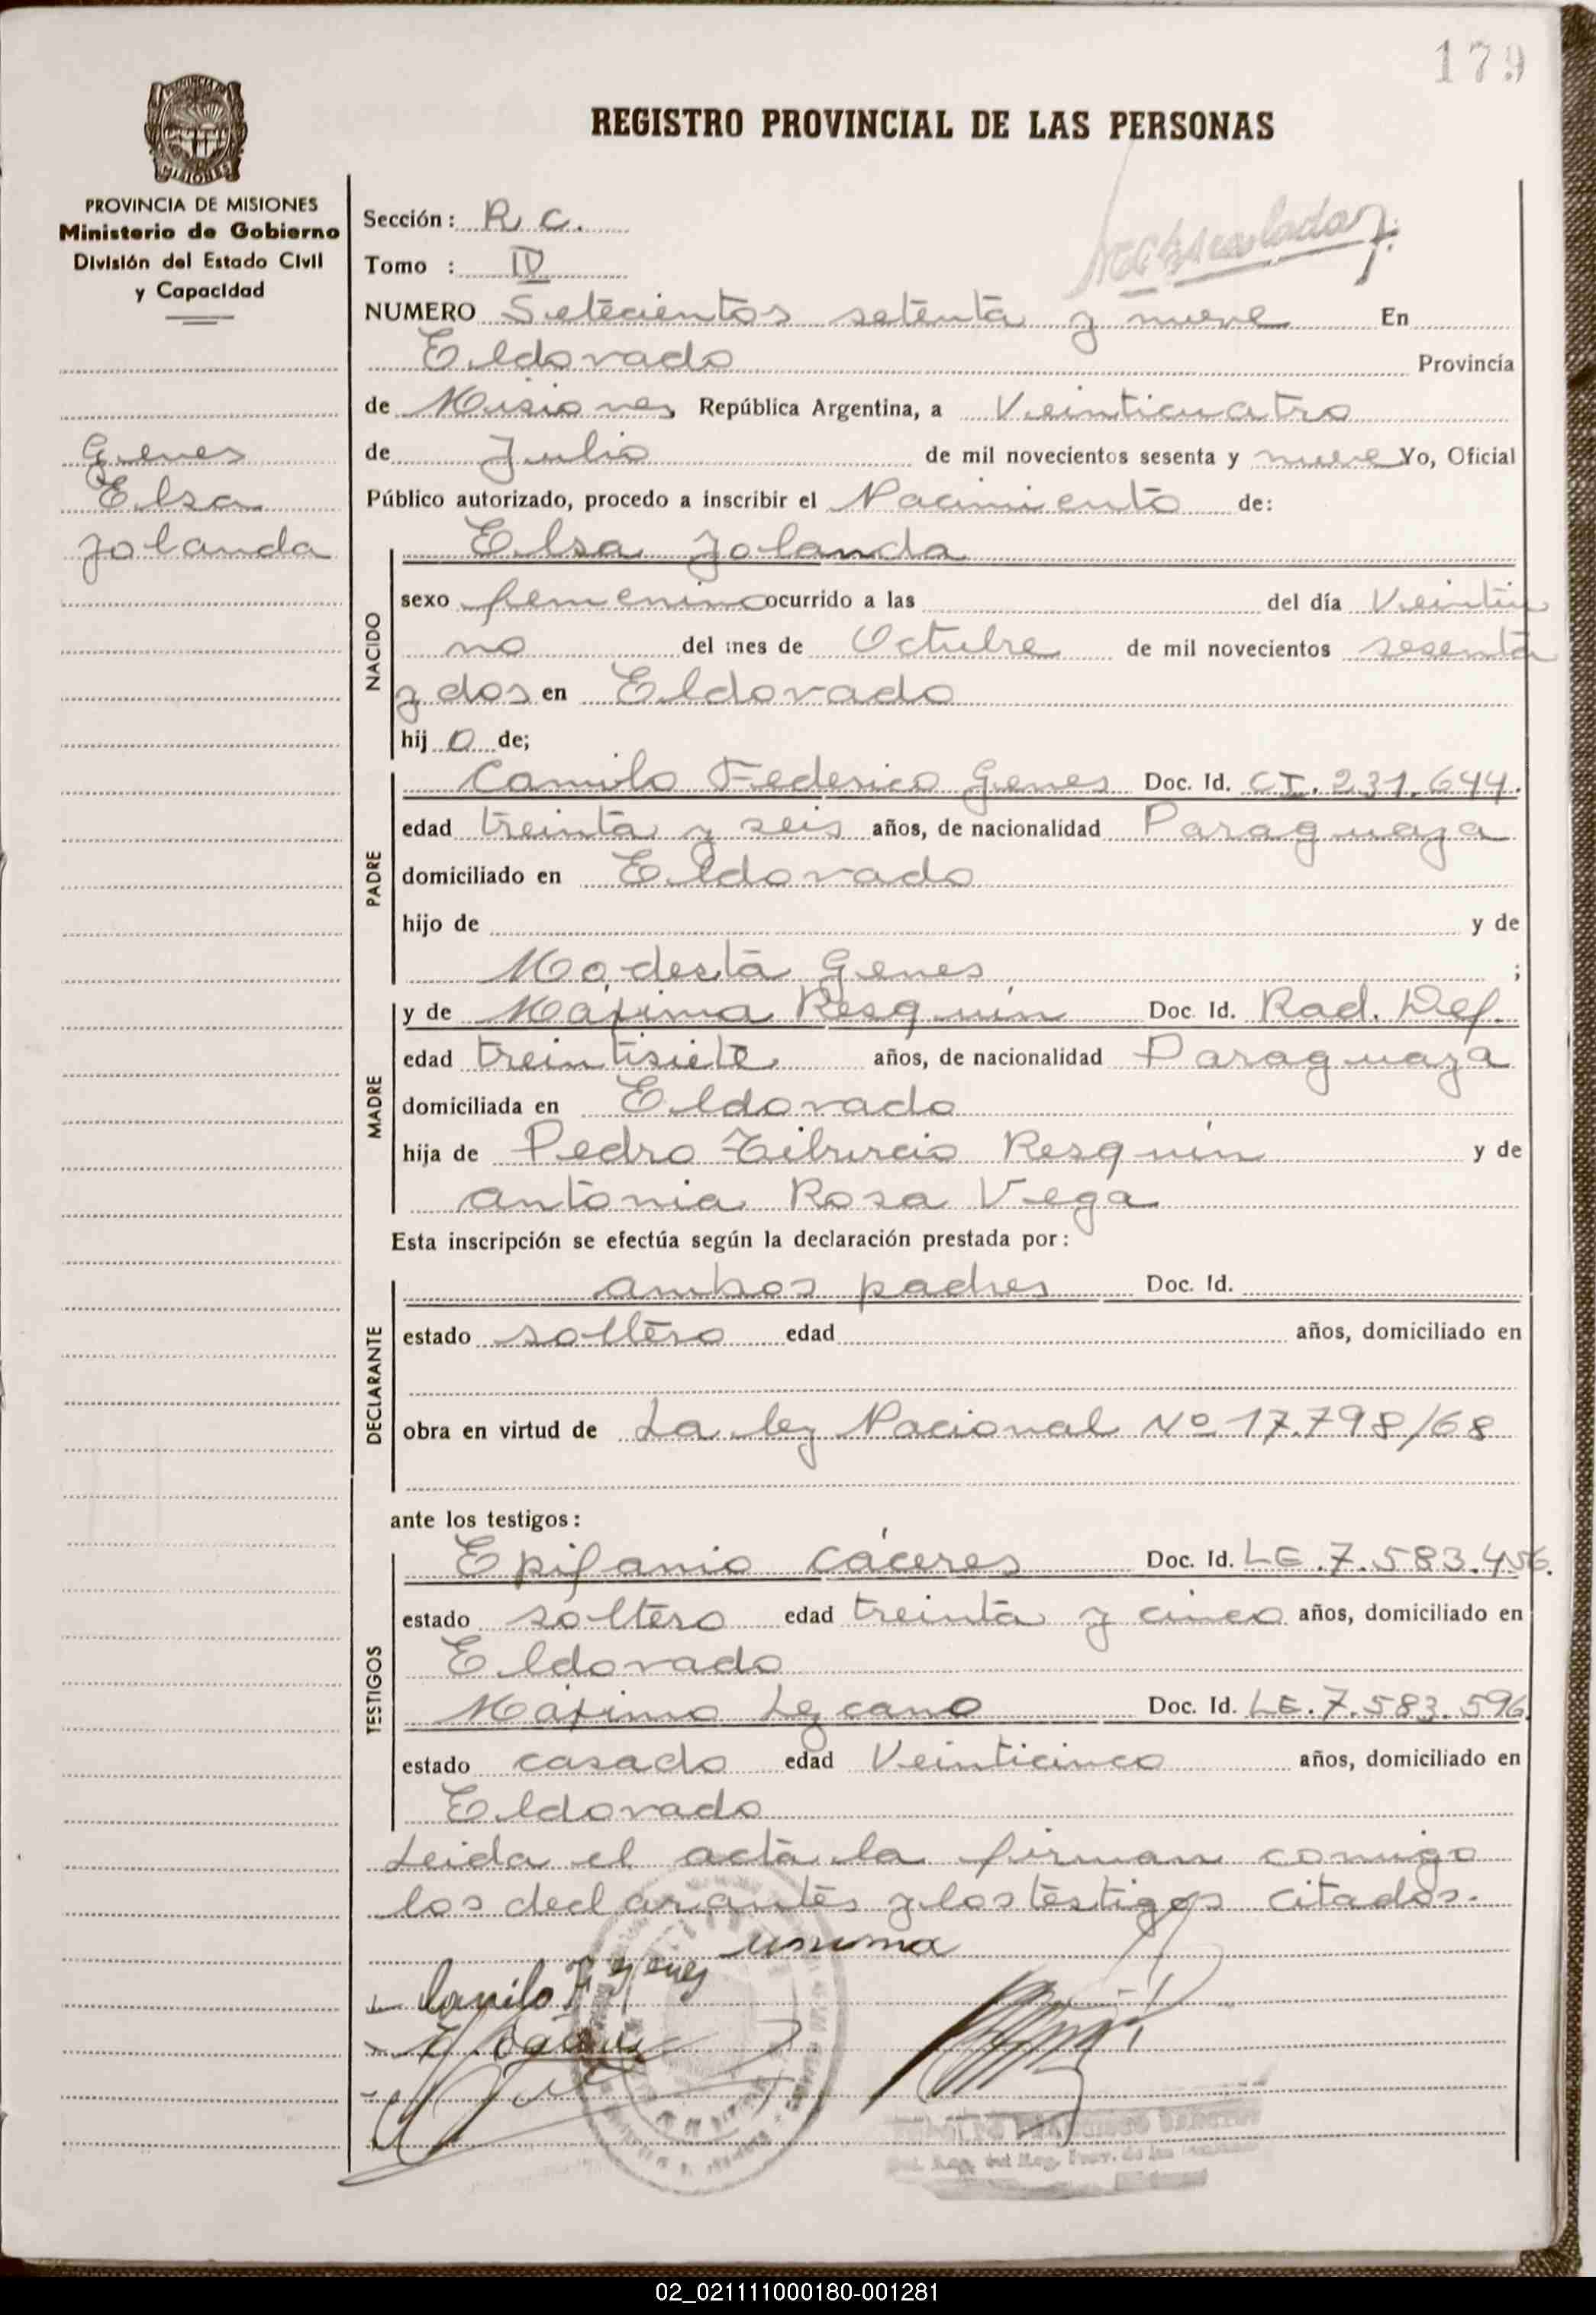 179
REGISTRO PROVINCIAL DE LAS PERSONAS
PROVINCIA DE MISIONES
Ministerio de Gobierno
División del Estado Civil
y Capacidad
Genes
Elsa
Jolanda
Sección: R. C.
Tomo : IV
NUMERO Setecientos setenta y nueve En
Eldorado Provincia
de Misiones República Argentina, a Veinticuatro
de Julio de mil novecientos sesenta y nueve Yo, Oficial
Público autorizado, procedo a inscribir el Nacimiento de:
NACIDO
Elsa Jolanda
sexo femenino ocurrido a las del día Veintiu
no del mes de Octubre de mil novecientos sesenta
y dos en Eldorado
hij o de;
PADRE
Camilo Federico Genes Doc. Id. CI. 231.644.
edad treinta y seis años, de nacionalidad Paraguaya
domiciliado en Eldorado
hijo de y de
Modesta Genes ;
MADRE
y de Máxima Resquín Doc. Id. Rad. Def.
edad treintisiete años, de nacionalidad Paraguaya
domiciliada en Eldorado
hija de Pedro Tiburcio Resquín y de
Antonia Rosa Vega
Esta inscripción se efectúa según la declaración prestada por:
DECLARANTE
ambos padres Doc. Id.
estado soltero edad años, domiciliado en
obra en virtud de La ley Nacional Nº 17.798/68
ante los testigos:
TESTIGOS
Epifanio Cáceres Doc. Id. LE. 7.583.456.
estado soltero edad treinta y cinco años, domiciliado en
Eldorado
Máximo Lezcano Doc. Id. LE. 7.583.596
estado casado edad Veinticinco años, domiciliado en
Eldorado
Leida el acta la firman conmigo
los declarantes y los testigos citados.
Camilo F genes
02_021111000180-001281